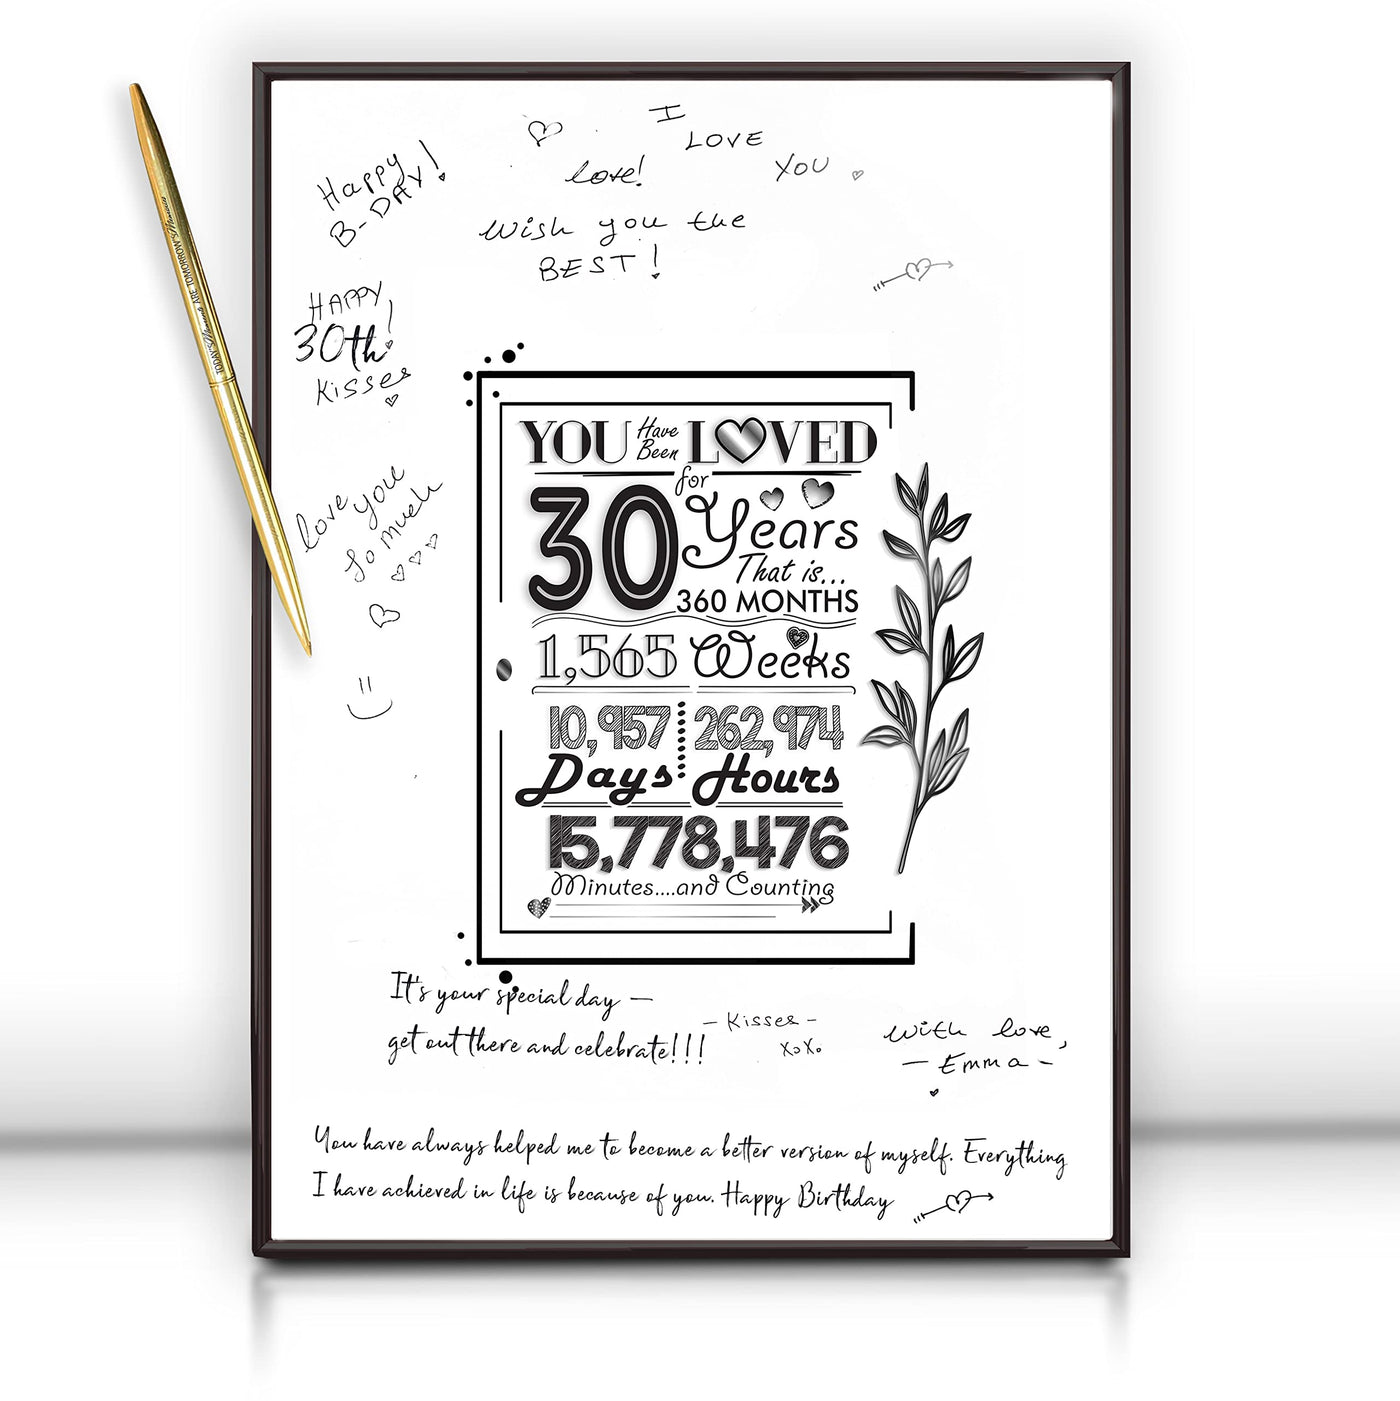 I
LOVE
YOU
love!
Happy
B-DAY!
Wish you the
BEST!
HAPPY
30th!
Kisses
love you
so much
TODAY'S Moments ARE TOMORROW'S Memories
YOU Have Been LOVED
for
30 Years
That is...
360 MONTHS
1,565 Weeks
10,957 262,974
Days Hours
15,778,476
Minutes....and Counting
It's your special day –
get out there and celebrate!!!
- Kisses -
XoXo
With love,
- Emma -
You have always helped me to become a better version of myself. Everything
I have achieved in life is because of you. Happy Birthday